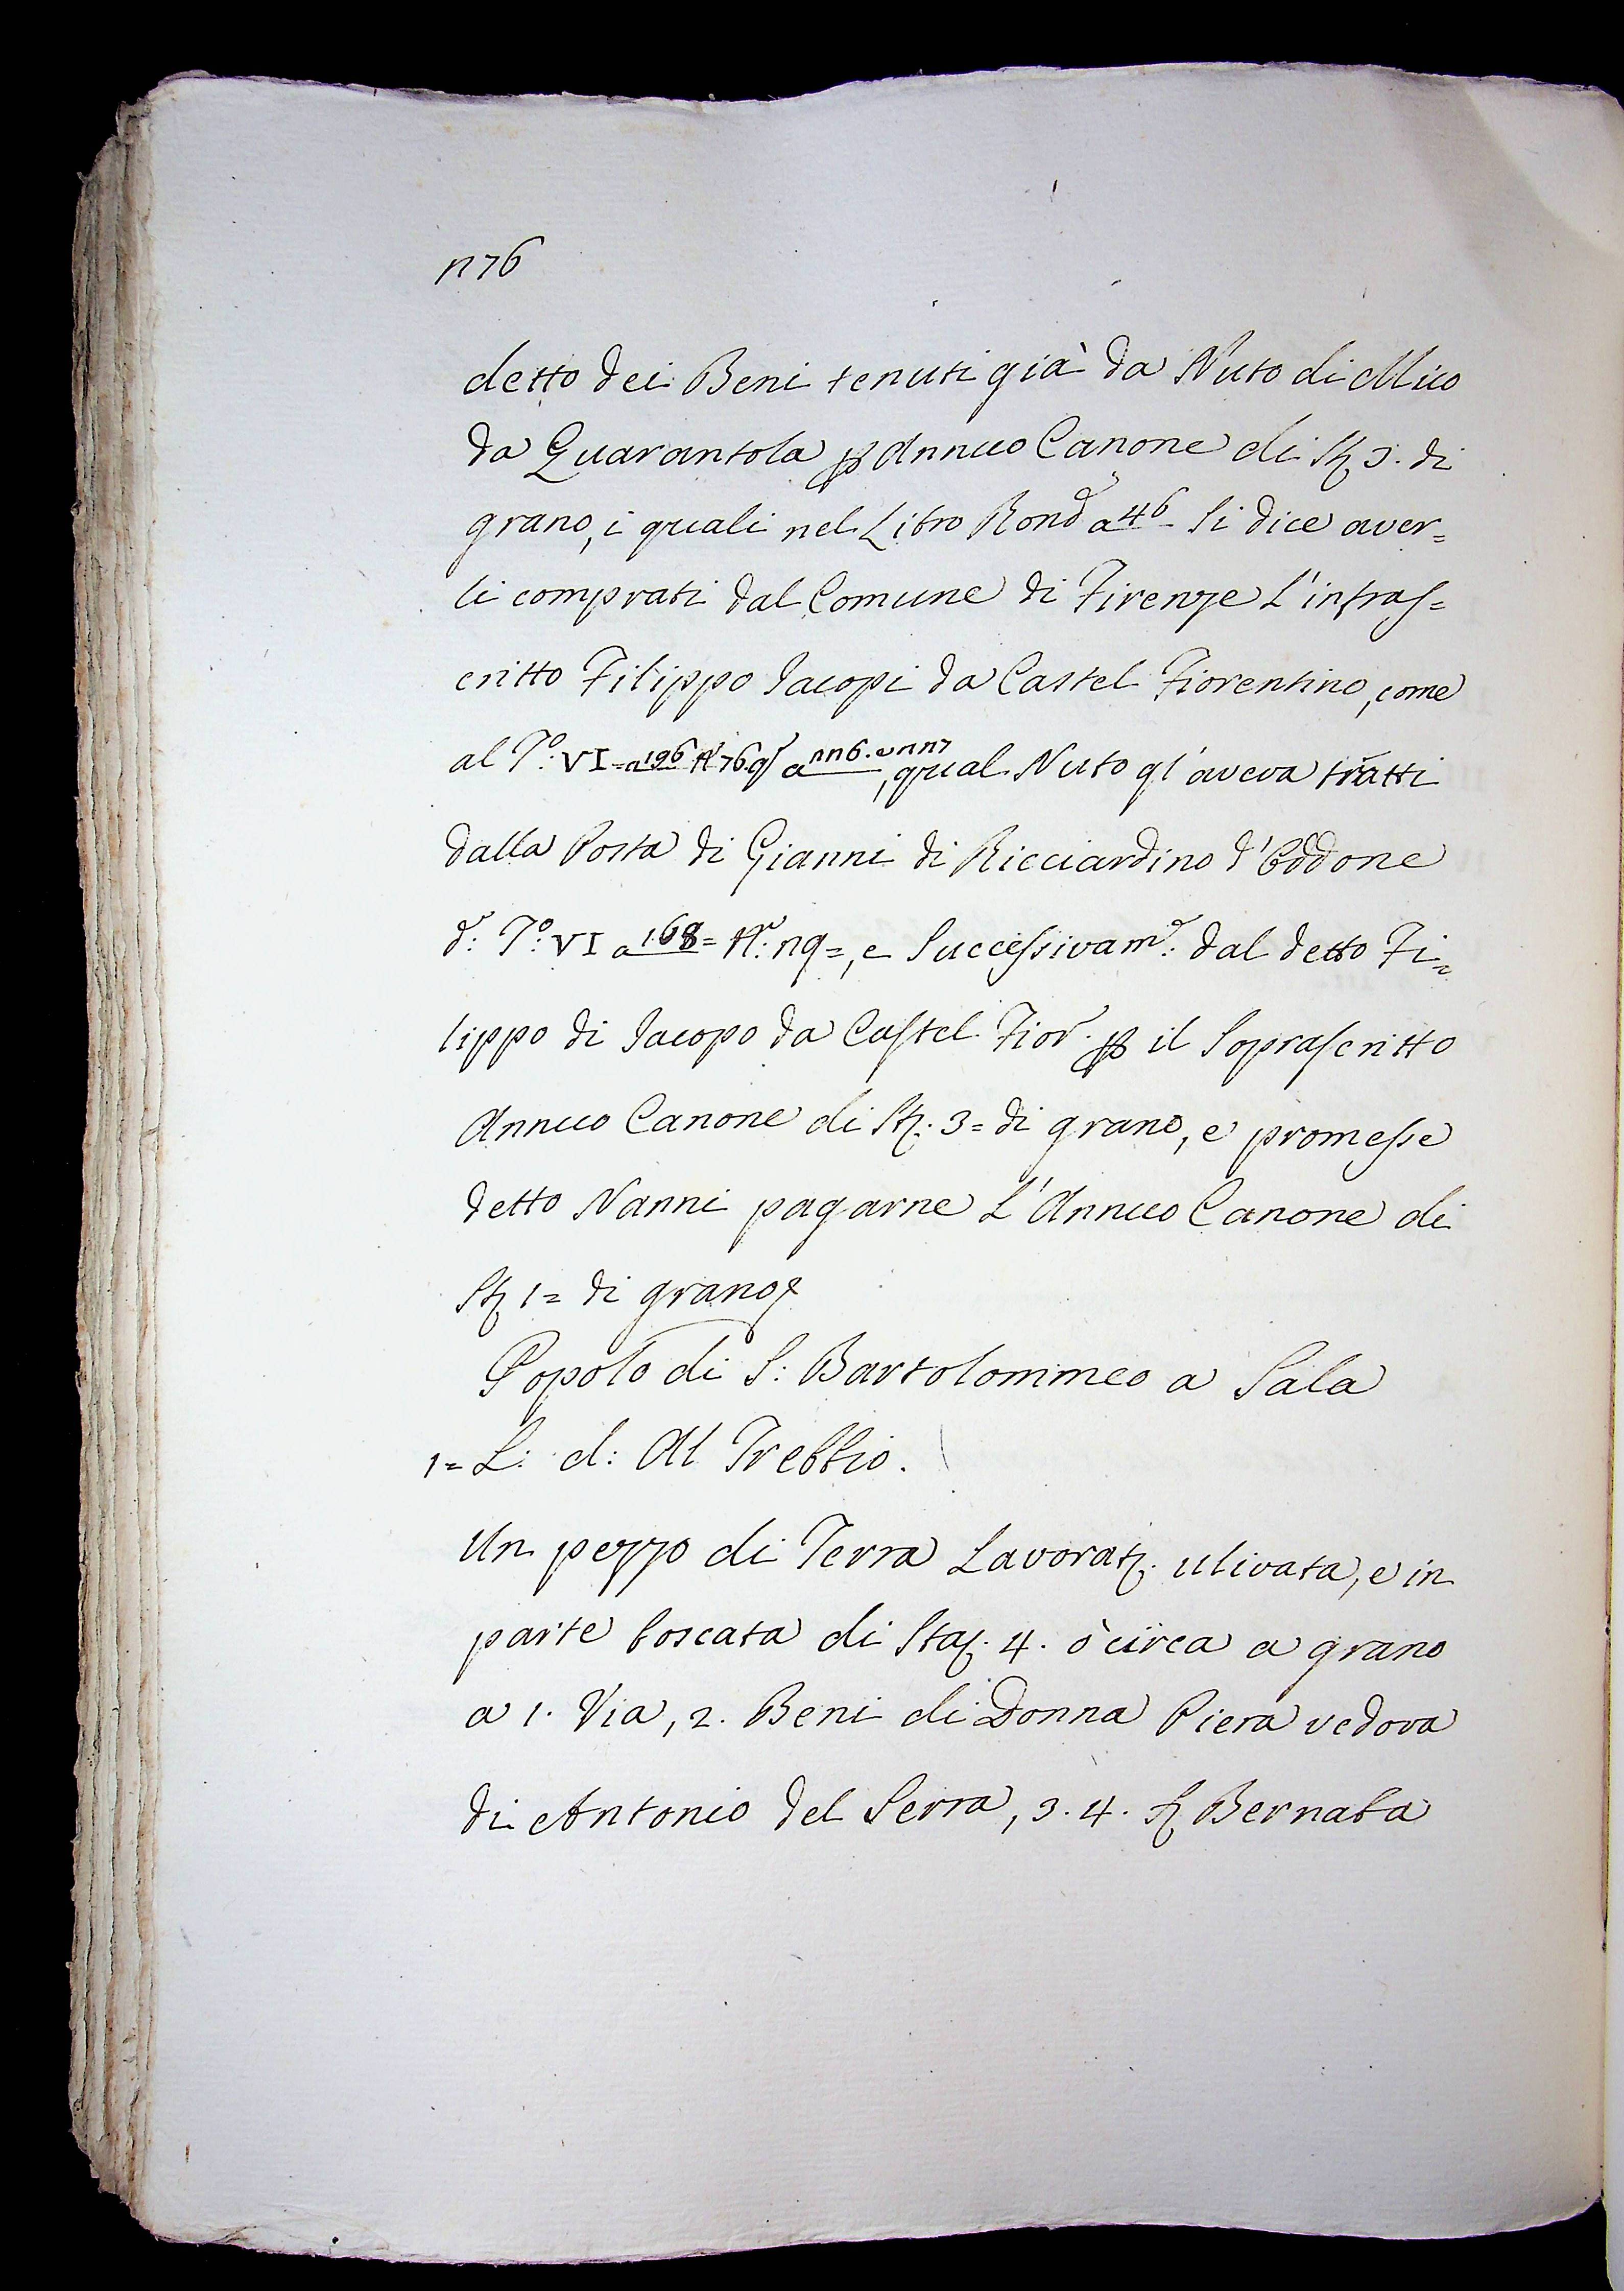 n76
detto dei Beni tenuti già da Nuto di Mico
da Quarantola p Annuo Canone di St 3. di
grano, i quali nel Libro Rond a 46 Si dice aver=
li comprati dal Comune di Firenze L'infras=
critto Filippo Jacopi da Castel Fiorentino, come
al To: VI= a 196 No 76 qo a nn6. e nn7, qual Nuto gl'aveva tratti
dalla Posta di Gianni di Ricciardino d'Oddone
do: To: VI a 168= No: nq=, e Successivame: dal detto Fi=
lippo di Jacopo da Castel Fior. p il Soprascritto
Annuo Canone di St. 3= di grano, e promesse
detto Nanni pagarne L'Annuo Canone di
St 1= di grano
Popolo di S: Bartolommeo a Sala
1= L: d: Al Trebbio.
Un pezzo di Terra Lavorat. ulivata, e in
parte boscata di Sta. 4. ò circa a grano
a 1. Via, 2. Beni di Donna Piera vedova
di Antonio del Serra, 3. 4. Bernaba